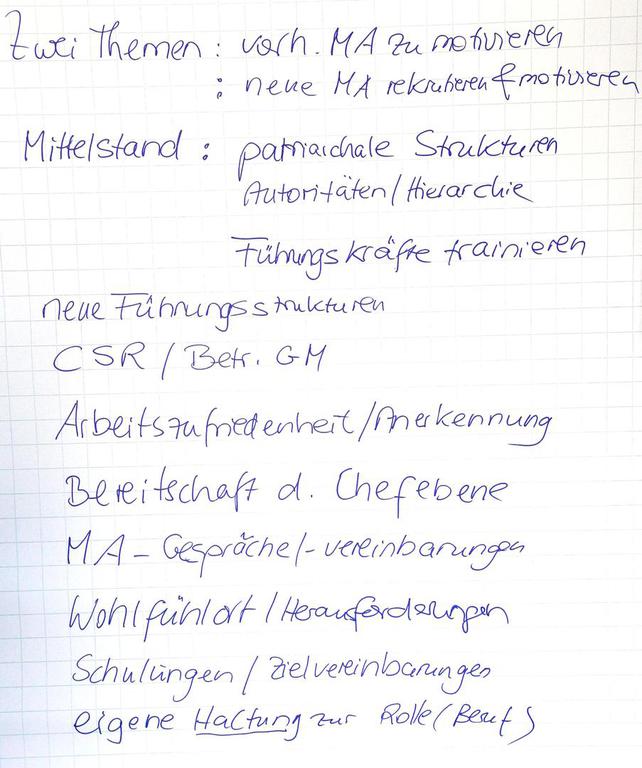 Zwei Themen: vorh. MA zu motivieren
: neue MA rekrutieren & motivieren
Mittelstand: patriarchale Strukturen
Autoritäten/Hierarchie
Führungskräfte trainieren
neue Führungsstrukturen
CSR / Betr. GM
Arbeitszufriedenheit/Anerkennung
Bereitschaft d. Chefebene
MA-Gespräche/-vereinbarungen
Wohlfühlort/Herausforderungen
Schulungen/Zielvereinbarungen
eigene Haltung zur Rolle (Beruf)